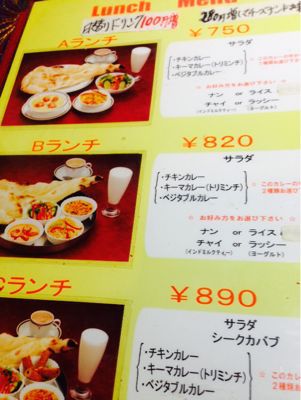 Lunch Menu
日替りドリンク100円増
Aランチ
￥750
サラダ
・チキンカレー
・キーマカレー(トリミンチ)
・ベジタブルカレー
☆ お好み方をお選び下さい ☆
ナン or ライス
チャイ or ラッシー
(インドミルクティー) (ヨーグルト)
Bランチ
￥820
サラダ
・チキンカレー
・キーマカレー(トリミンチ)
・ベジタブルカレー
☆ このカレーの
2種類お選び
☆ お好み方をお選び下さい ☆
ナン or ライス
チャイ or ラッシー
(インドミルクティー) (ヨーグルト)
Cランチ
￥890
サラダ
シークカバブ
・チキンカレー
・キーマカレー(トリミンチ)
・ベジタブルカレー
☆ このカレー
2種類